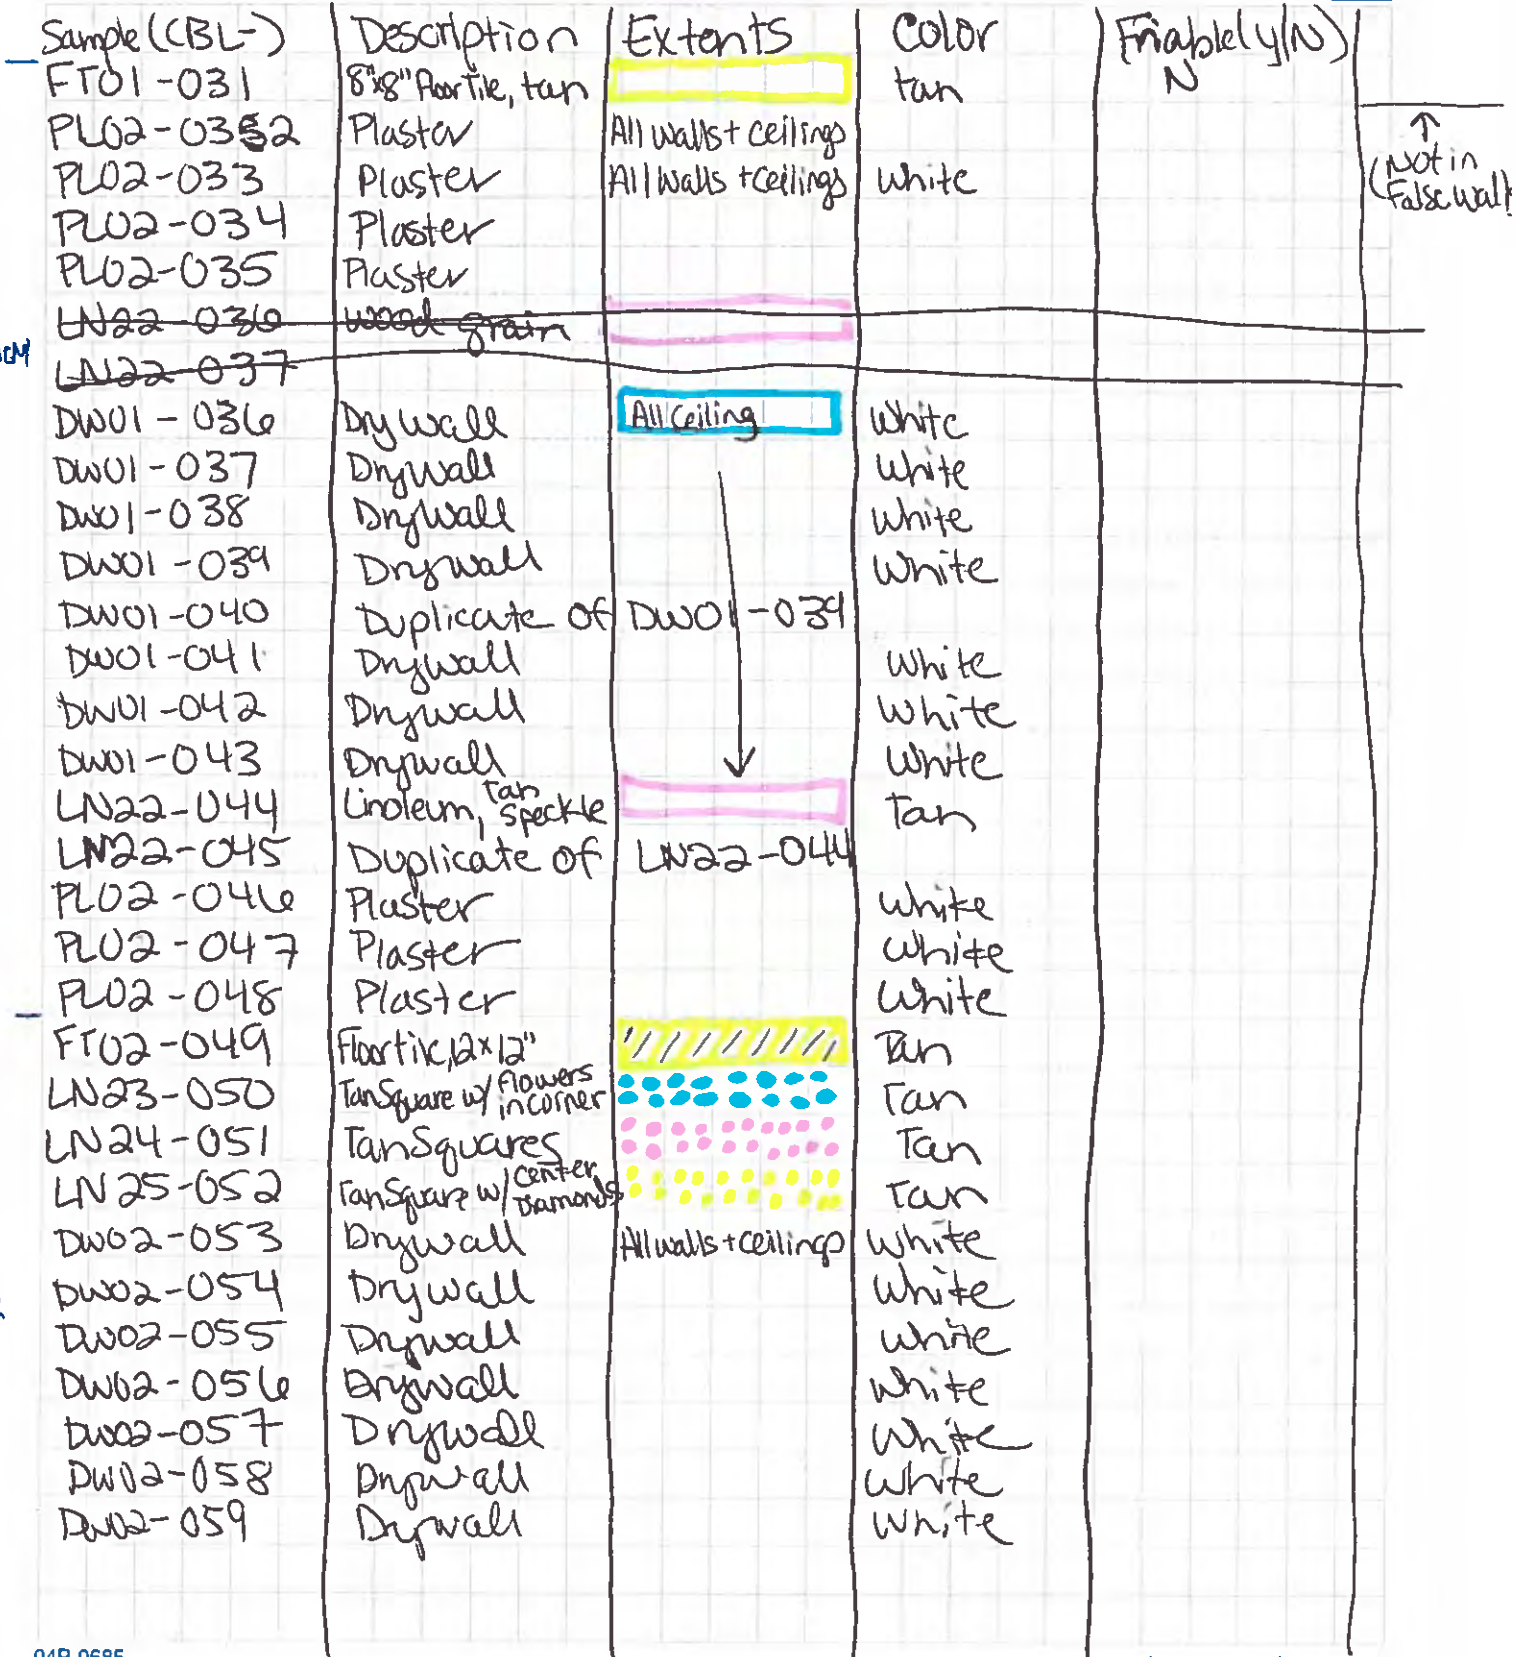 Sample (CBL-) Description Extents Color Friable (Y/N)
FT01-031 8"x8" Floor Tile, tan tan N
PL02-032 Plaster All walls + ceilings
PL02-033 Plaster All Walls + Ceilings White
↑
(Not in
False Wall)
PL02-034 Plaster
PL02-035 Plaster
LN22-036 Wood grain
LN22-037
DW01-036 Drywall All Ceiling White
DW01-037 Drywall White
DW01-038 Drywall White
DW01-039 Drywall White
DW01-040 Duplicate of DW01-039
DW01-041 Drywall White
DW01-042 Drywall White
DW01-043 Drywall White
LN22-044 Linoleum, Tan Speckle Tan
LN22-045 Duplicate of LN22-044
PL02-046 Plaster White
PL02-047 Plaster White
PL02-048 Plaster White
FT02-049 Floortile, 12x12" Tan
LN23-050 Tan Square w/ flowers in corner Tan
LN24-051 Tan Squares Tan
LN25-052 Tan Square w/ center Diamonds Tan
DW02-053 Drywall All walls + ceilings White
DW02-054 Drywall White
DW02-055 Drywall White
DW02-056 Drywall White
DW02-057 Drywall White
DW02-058 Drywall White
DW02-059 Drywall White